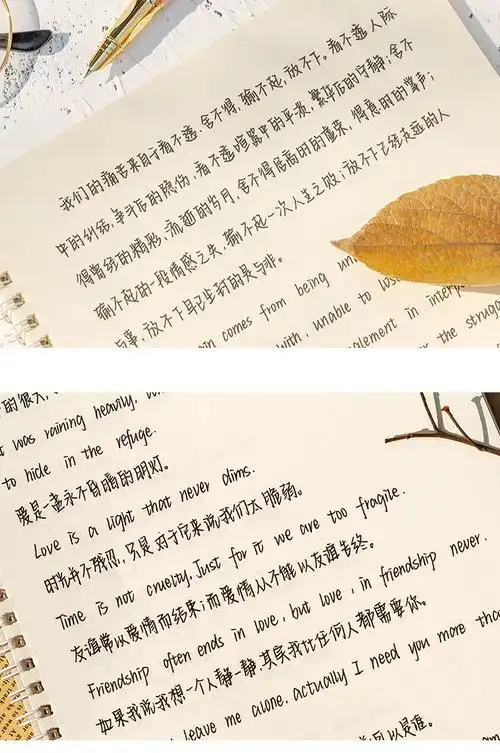 我们的痛苦来自于看不透,舍不得,输不起,放不下。看不透人际
中的纠结,争斗后的隐伤,看不透喧嚣中的平淡,繁华后的宁静;舍不
得曾经的精彩,流逝的岁月,舍不得居高时的虚荣,得意时的掌声;
输不起的一段情感之失,输不起一次人生之败;放不下已经走远的人
与事,放不下早已尘封的是与非。
comes from being
with, unable to
in
the
的很大,
was raining heavily,
to hide in the refuge.
爱是一盏永不昏暗的明灯。
Love is a light that never dims.
时光并不残忍,只是对于它来说我们太脆弱。
Time is not cruelty, Just for it we are too fragile.
友谊常以爱情而结束;而爱情从不能以友谊告终。
Friendship often ends in love, but love, in friendship never.
如果我说我想一个人静一静,其实我比任何人都需要你。
leave me alone, actually I need you more